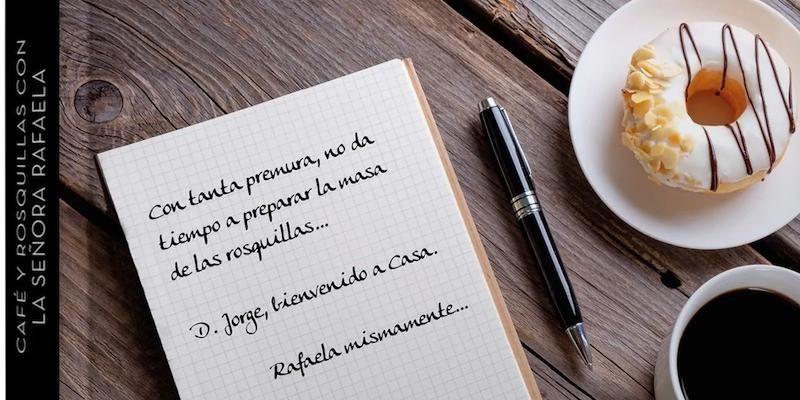 CAFÉ Y ROSQUILLAS CON
LA SEÑORA RAFAELA
Con tanta premura, no da
tiempo a preparar la masa
de las rosquillas...
D. Jorge, bienvenido a Casa.
Rafaela mismamente...